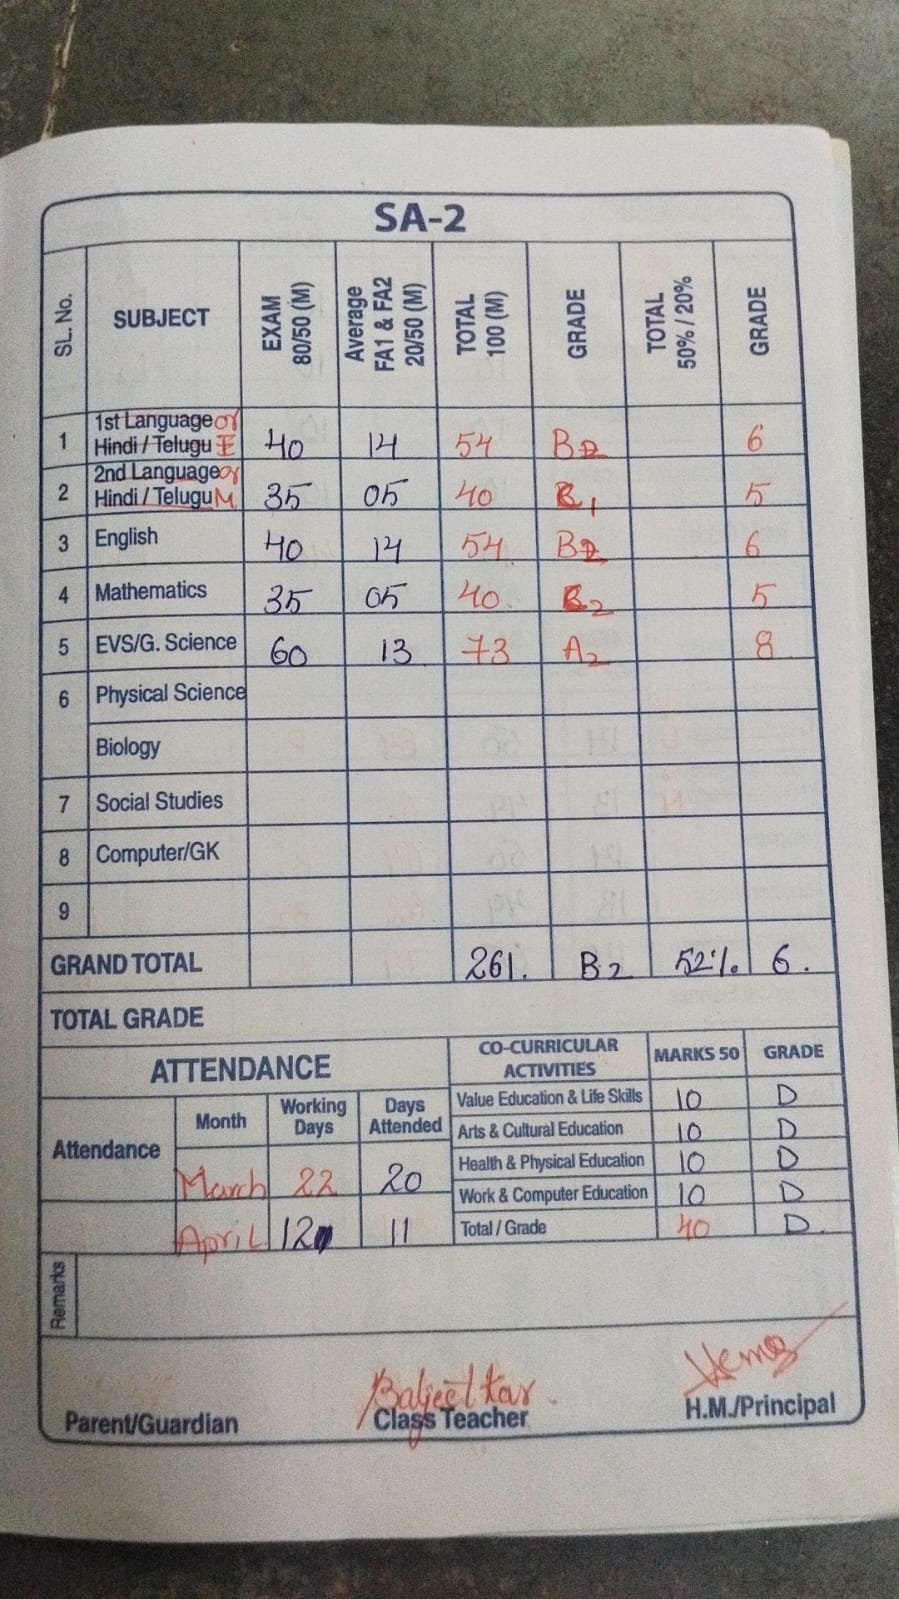 SA-2
SL. No. SUBJECT EXAM 80/50 (M) Average FA1 & FA2 20/50 (M) TOTAL 100 (M) GRADE TOTAL 50% / 20% GRADE
1st Language or
1 Hindi / Telugu E 40 14 54 B2 6
2nd Language or
2 Hindi / Telugu M 35 05 40 1 5
3 English 40 14 54 B2 6
4 Mathematics 35 05 40 2 5
5 EVS/G. Science 60 13 73 A2 8
6 Physical Science
Biology
7 Social Studies
8 Computer/GK
9
GRAND TOTAL 261. B2 52% 6.
TOTAL GRADE
ATTENDANCE
Attendance Month Working Days Days Attended
March 22 20
April 12 11
CO-CURRICULAR ACTIVITIES MARKS 50 GRADE
Value Education & Life Skills 10 D
Arts & Cultural Education 10 D
Health & Physical Education 10 D
Work & Computer Education 10 D
Total / Grade 40 D
Remarks
Baljeet Kar
Parent/Guardian Class Teacher H.M./Principal